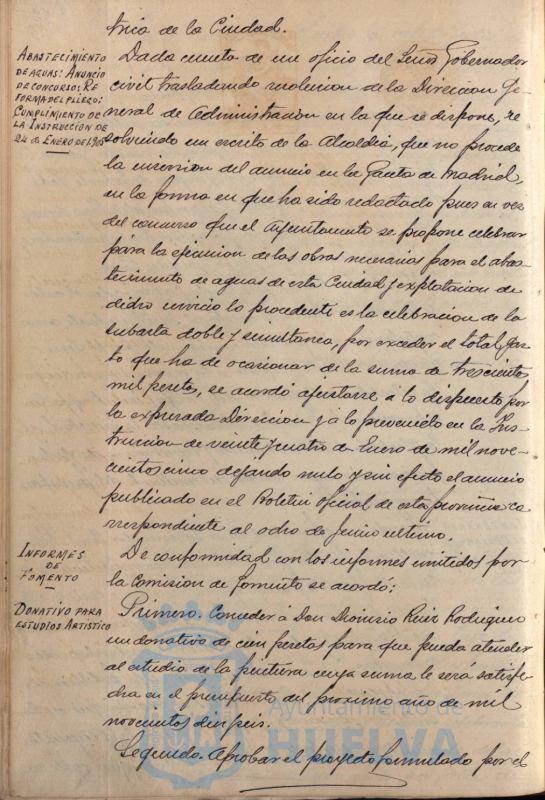 trica de la Ciudad.
ABASTECIMIENTO
DE AGUAS: ANUNCIO
DE CONCURSO: RE
FORMA DEL PLIEGO:
CUMPLIMIENTO DE
LA INSTRUCCION DE
24 de ENERO DE 1.905
Dada cuenta de un oficio del Señor Gobernador
civil trasladando resolucion de la Direccion Ge
neral de Administracion en la que se dispone, re
solviendo un escrito de la Alcaldia, que no procede
la insersion del anuncio en la Gaceta de Madrid,
en la forma en que ha sido redactado pues en vez
del concurso que el Ayuntamiento se propone celebrar
para la ejecucion de las obras necesarias para el abas
tecimiento de aguas de esta Ciudad y explotacion de
dicho servicio lo procedente es la celebracion de la
subasta doble y simultanea, por exceder el total gas
to que ha de ocasionar de la suma de trescientas
mil pesetas, se acordó ajustarse á lo dispuesto por
la expresada Direccion y á lo prevenido en la Ins
truccion de veinte y cuatro de Enero de mil nove
cientos cinco dejando nulo y sin efecto el anuncio
publicado en el Boletin oficial de esta provincia co
rrespondiente al ocho de Junio ultimo.
INFORMES
DE
FOMENTO
De conformidad con los informes emitidos por
la Comision de Fomento se acordó:
DONATIVO PARA
ESTUDIOS ARTISTICO
Primero. Conceder á Don Dionisio Ruiz Rodriguez
un donativo de cien pesetas para que pueda atender
al estudio de la pintura cuya suma le será satisfe
cha en el presupuesto del proximo año de mil
novecientos diez y seis.
Segundo. Aprobar el proyecto formulado por el
Ayuntamiento de
HUELVA